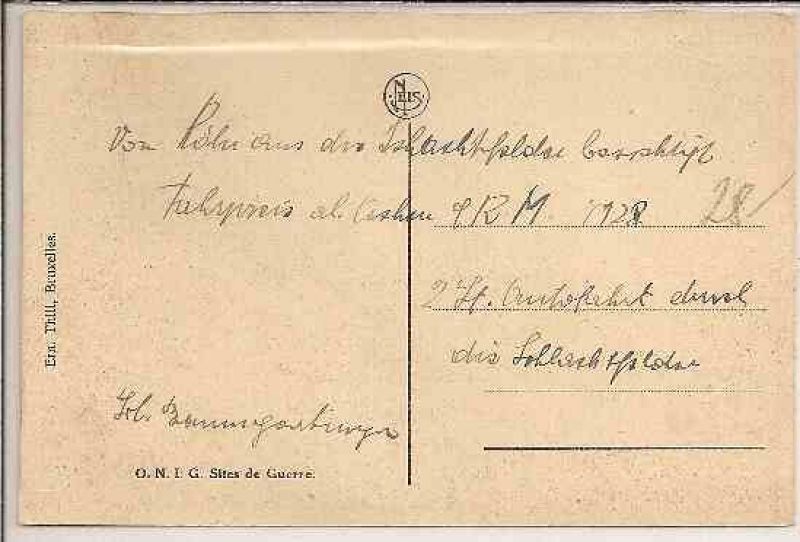 NELS
Von Köln aus die Schlachtfelder besichtigt
Fahrpreis ab Aachen 9 RM. 1928 28
2 St. Autofahrt durch
die Schlachtfelder
Joh. Baumgartinger
O. N. I. G. Sites de Guerre.
Ern. Thill, Bruxelles.